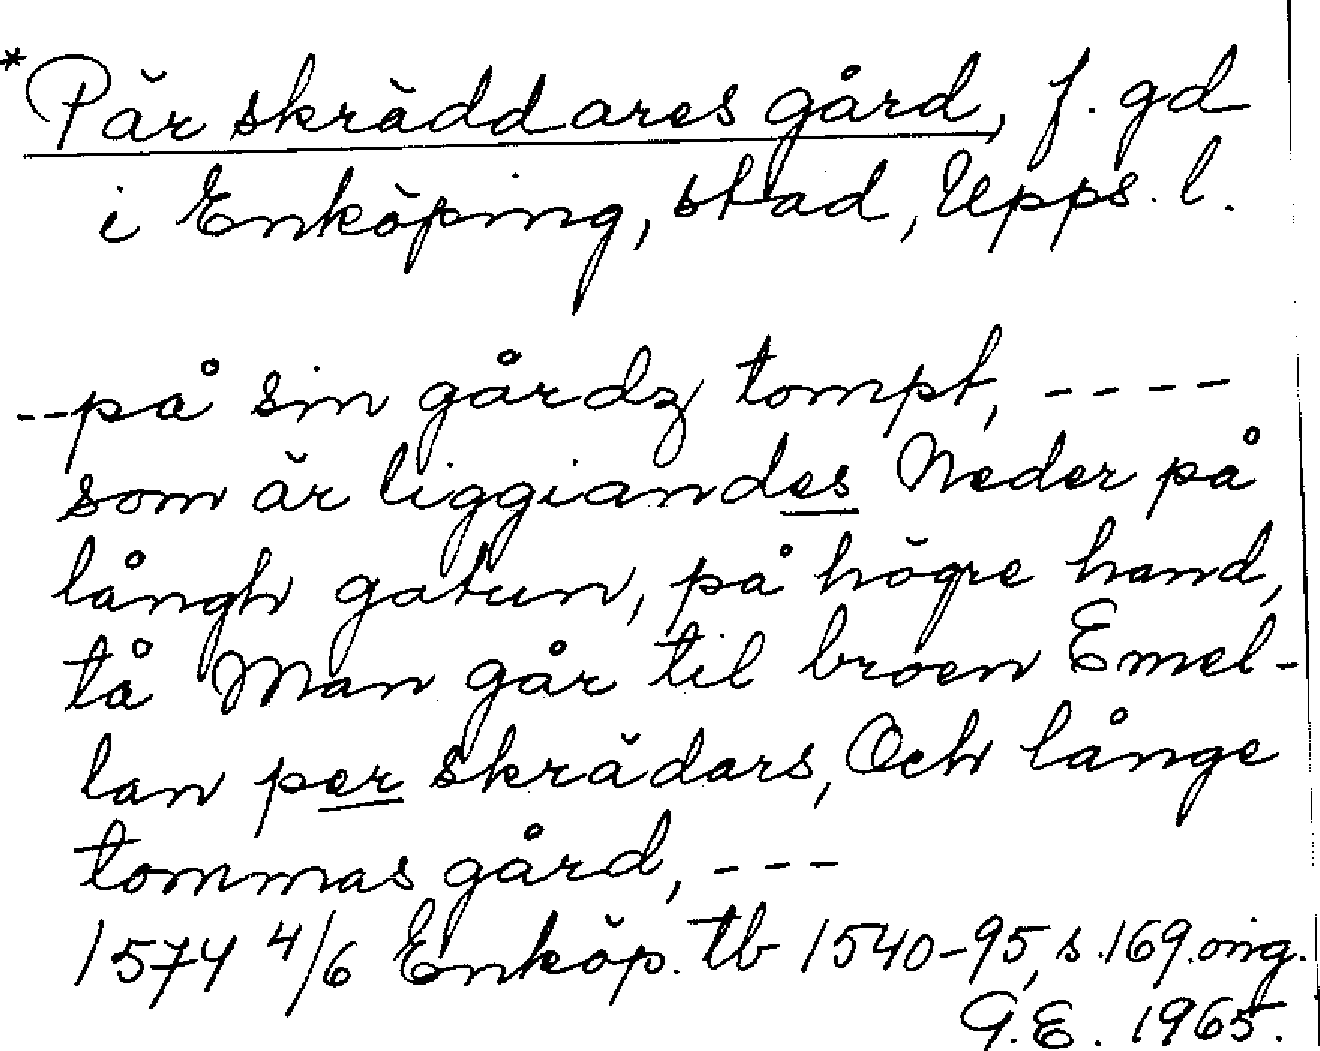 *Pär skräddares gård, f. gd
i Enköping, stad, Upps. l.
--på sin gårdz tompt, ----
som är liggiandes Neder på
långh gatun, på högre hand,
tå Man går til broen Emel-
lan per skrädars, Och långe
tommas gård, ---
1574 4/6 Enköp. tb 1540-95, s. 169. orig.
G.E. 1965.